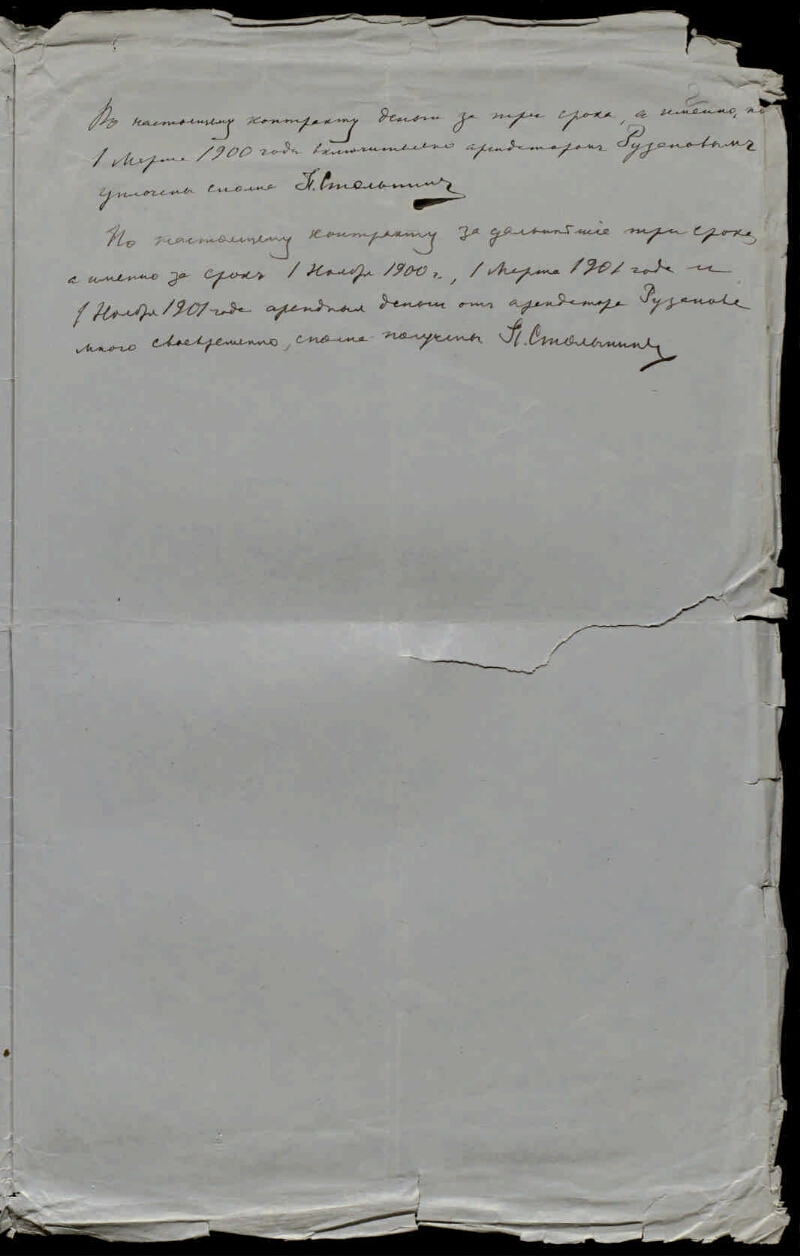 По настоящему контракту деньги за три срока, а именно, по
1 Марта 1900 года включительно арендаторомъ Рузановымъ
уплочены сполна П. Столыпинъ
По настоящему контракту за дальнѣйшіе три срока,
а именно за срокъ 1 Ноября 1900 г., 1 Марта 1901 года и
1 Ноября 1901 года арендныя деньги отъ арендатора Рузанова
мною своевременно, сполна получены П. Столыпинъ